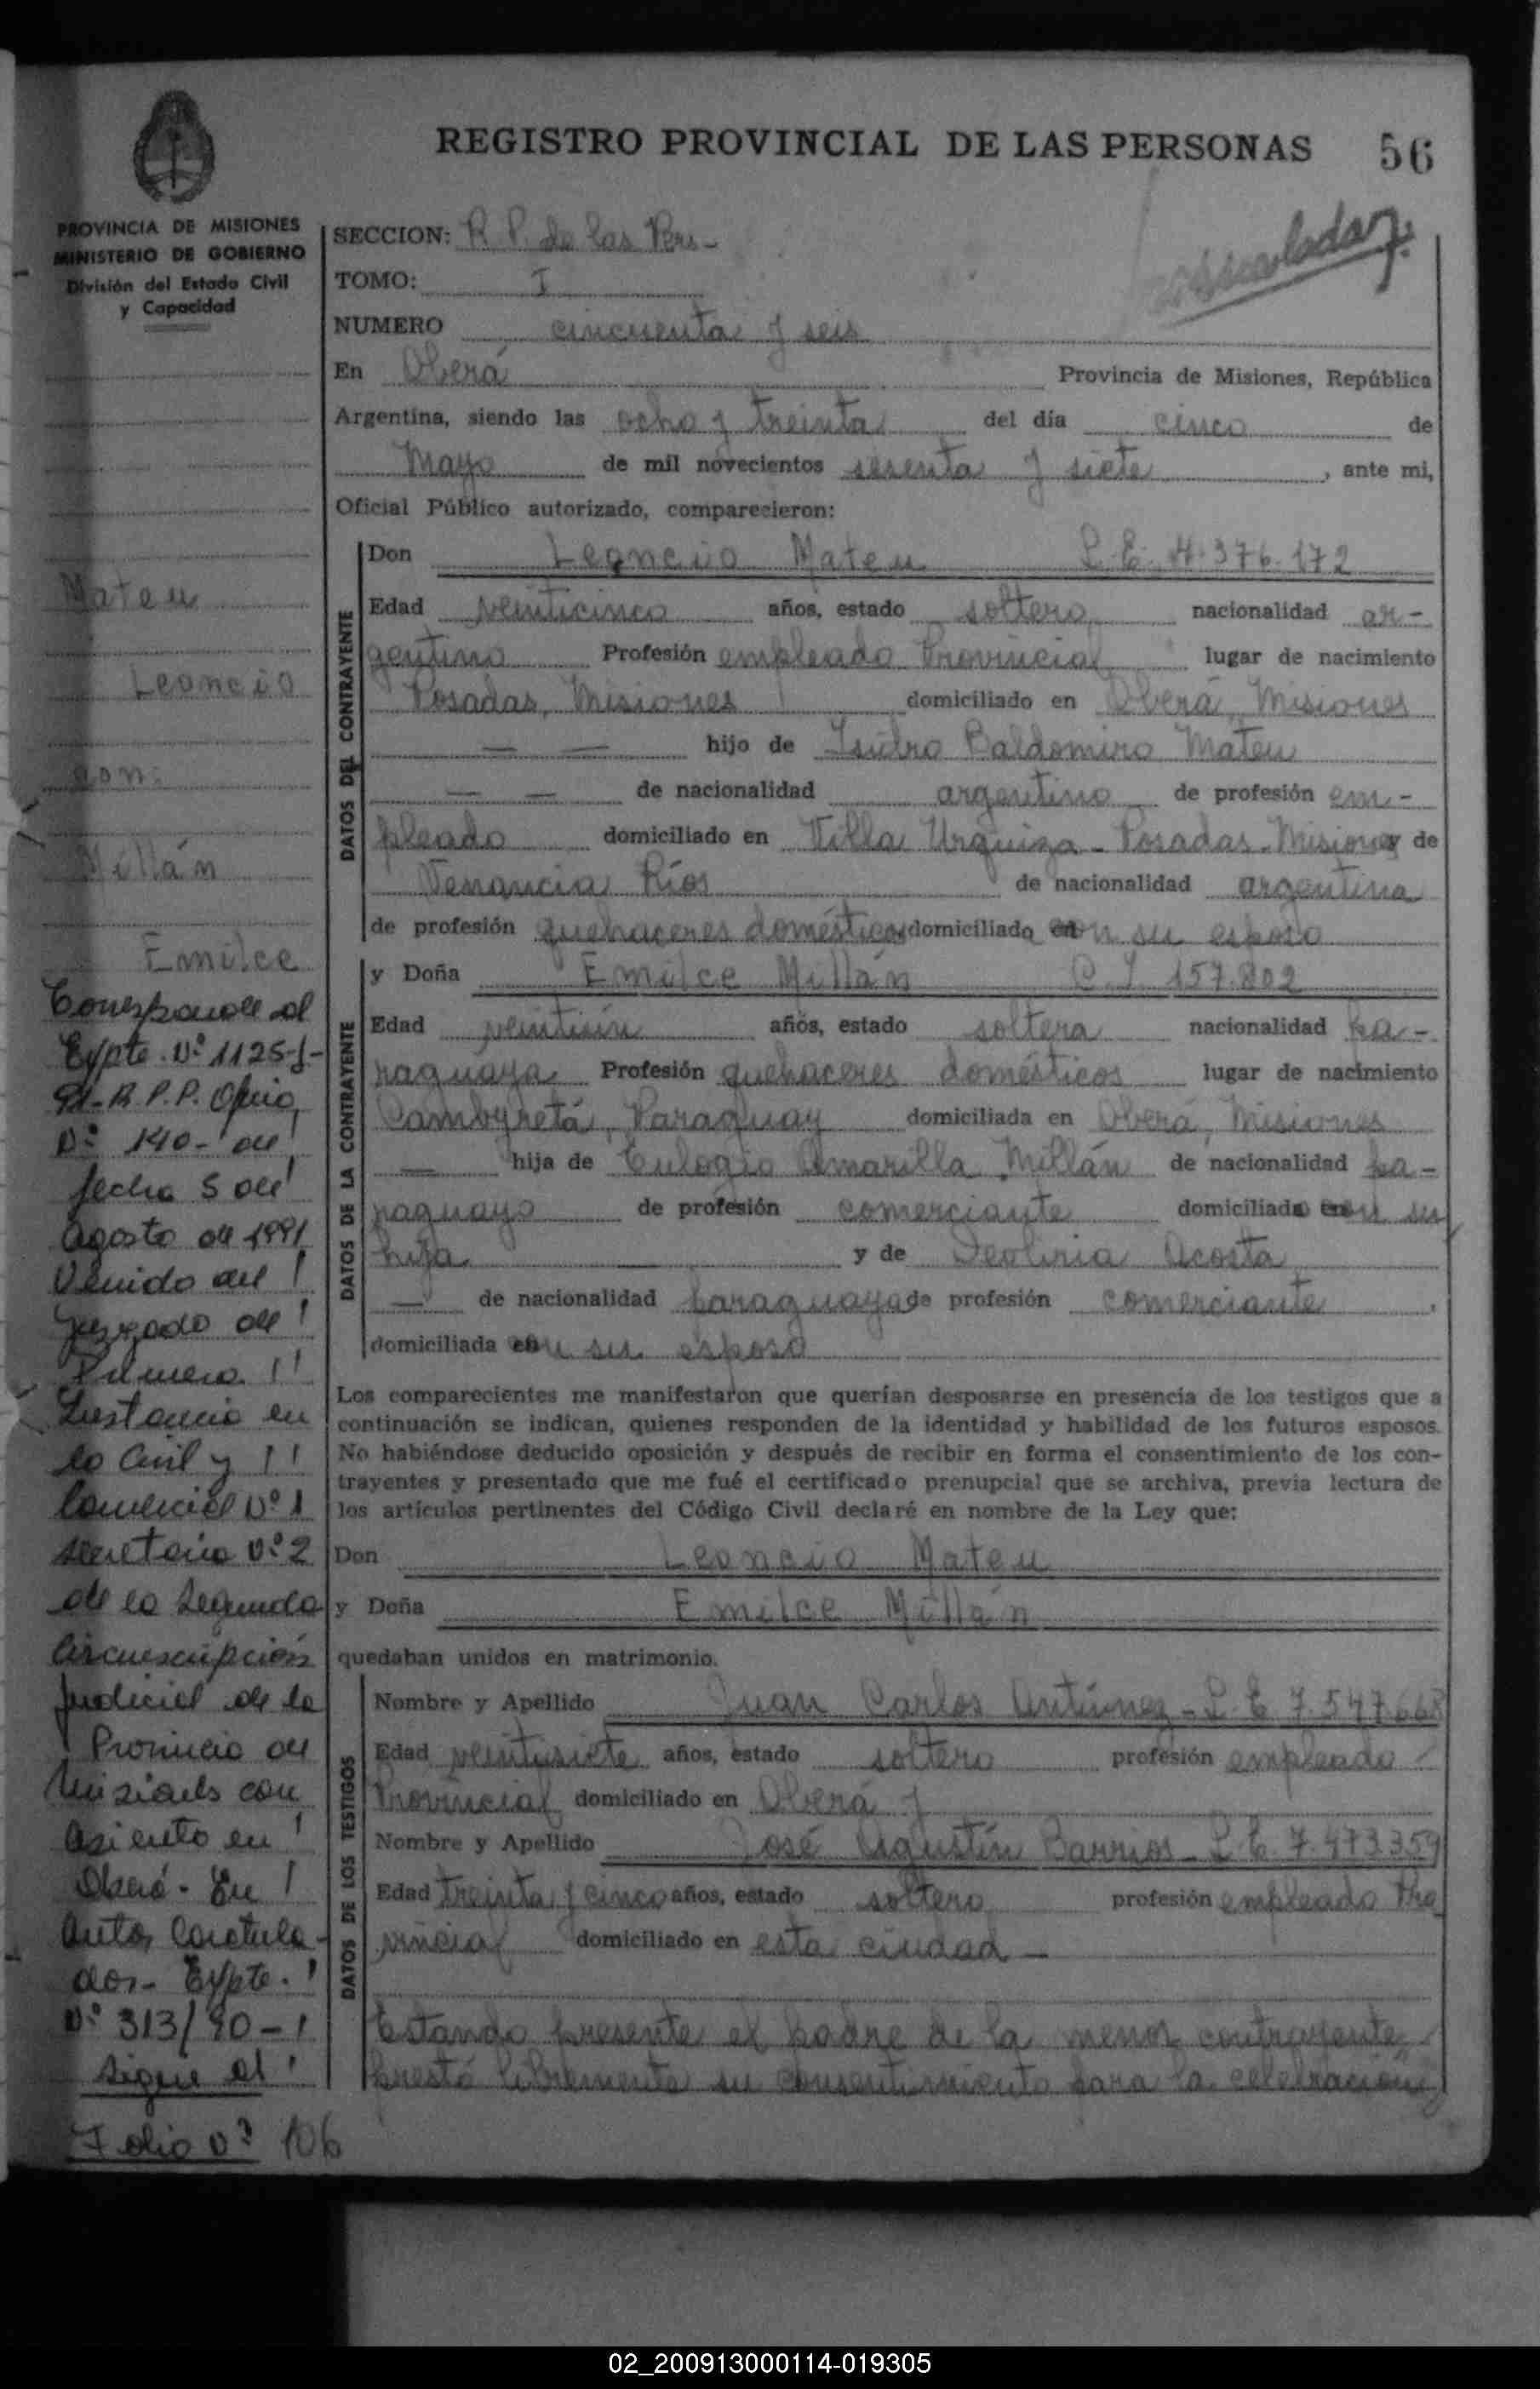 REGISTRO PROVINCIAL DE LAS PERSONAS 56
PROVINCIA DE MISIONES
MINISTERIO DE GOBIERNO
División del Estado Civil
y Capacidad
Mateu
Leoncio
con:
Millán
Emilce
Corresponde al
Expte. Nº 1125-J-
91-R.P.P. Oficio
Nº 140- de
fecha 5 de
Agosto de 1991
Venido del
Juzgado de
Primera
Instancia en
lo Civil y
Comercial Nº 1
Secretaria Nº 2
de la Segunda
Circunscripción
Judicial de la
Provincia de
Misiones con
Asiento en
Oberá - En
Autos Caratula-
dos- Expte.
Nº 313/90-
Sigue al
Folio Nº 106
SECCION: R P. de las Pers-
TOMO: I
NUMERO cincuenta y seis
En Oberá Provincia de Misiones, República
Argentina, siendo las ocho y treinta del día cinco de
Mayo de mil novecientos sesenta y siete, ante mi,
Oficial Público autorizado, comparecieron:
DATOS DEL CONTRAYENTE
Don Leoncio Mateu L.E. 4.376.172
Edad veinticinco años, estado soltero nacionalidad ar-
gentino Profesión empleado Provincial lugar de nacimiento
Posadas, Misiones domiciliado en Oberá, Misiones
— — hijo de Isidro Baldomiro Mateu
— — de nacionalidad argentino de profesión em-
pleado domiciliado en Villa Urquiza - Posadas - Misiones y de
Venancia Ríos de nacionalidad argentina
de profesión quehaceres domésticos domiciliada con su esposo
DATOS DE LA CONTRAYENTE
y Doña Emilce Millán C.I. 157.802
Edad años, estado soltera nacionalidad pa-
raguaya Profesión quehaceres domésticos lugar de nacimiento
Cambyretá, Paraguay domiciliada en Oberá, Misiones
— hija de Eulogio Amarilla Millán de nacionalidad pa-
raguayo de profesión comerciante domiciliado con su
hija — y de Acosta
— de nacionalidad paraguaya de profesión comerciante,
domiciliada con su esposo
Los comparecientes me manifestaron que querían desposarse en presencia de los testigos que a
continuación se indican, quienes responden de la identidad y habilidad de los futuros esposos.
No habiéndose deducido oposición y después de recibir en forma el consentimiento de los con-
trayentes y presentado que me fué el certificado prenupcial que se archiva, previa lectura de
los artículos pertinentes del Código Civil declaré en nombre de la Ley que:
Don Leoncio Mateu
y Doña Emilce Millán
quedaban unidos en matrimonio.
DATOS DE LOS TESTIGOS
Nombre y Apellido Juan Carlos Antúnez - L.E. 7.547.668
Edad veintisiete años, estado soltero profesión empleado
Provincial domiciliado en Oberá y
Nombre y Apellido José Agustín Barrios - L.E. 7.473.359
Edad treinta y cinco años, estado soltero profesión empleado Pro
vincial domiciliado en esta ciudad —
Estando presente el padre de la menor contrayente
prestó libremente su consentimiento para la celebración
02_200913000114-019305